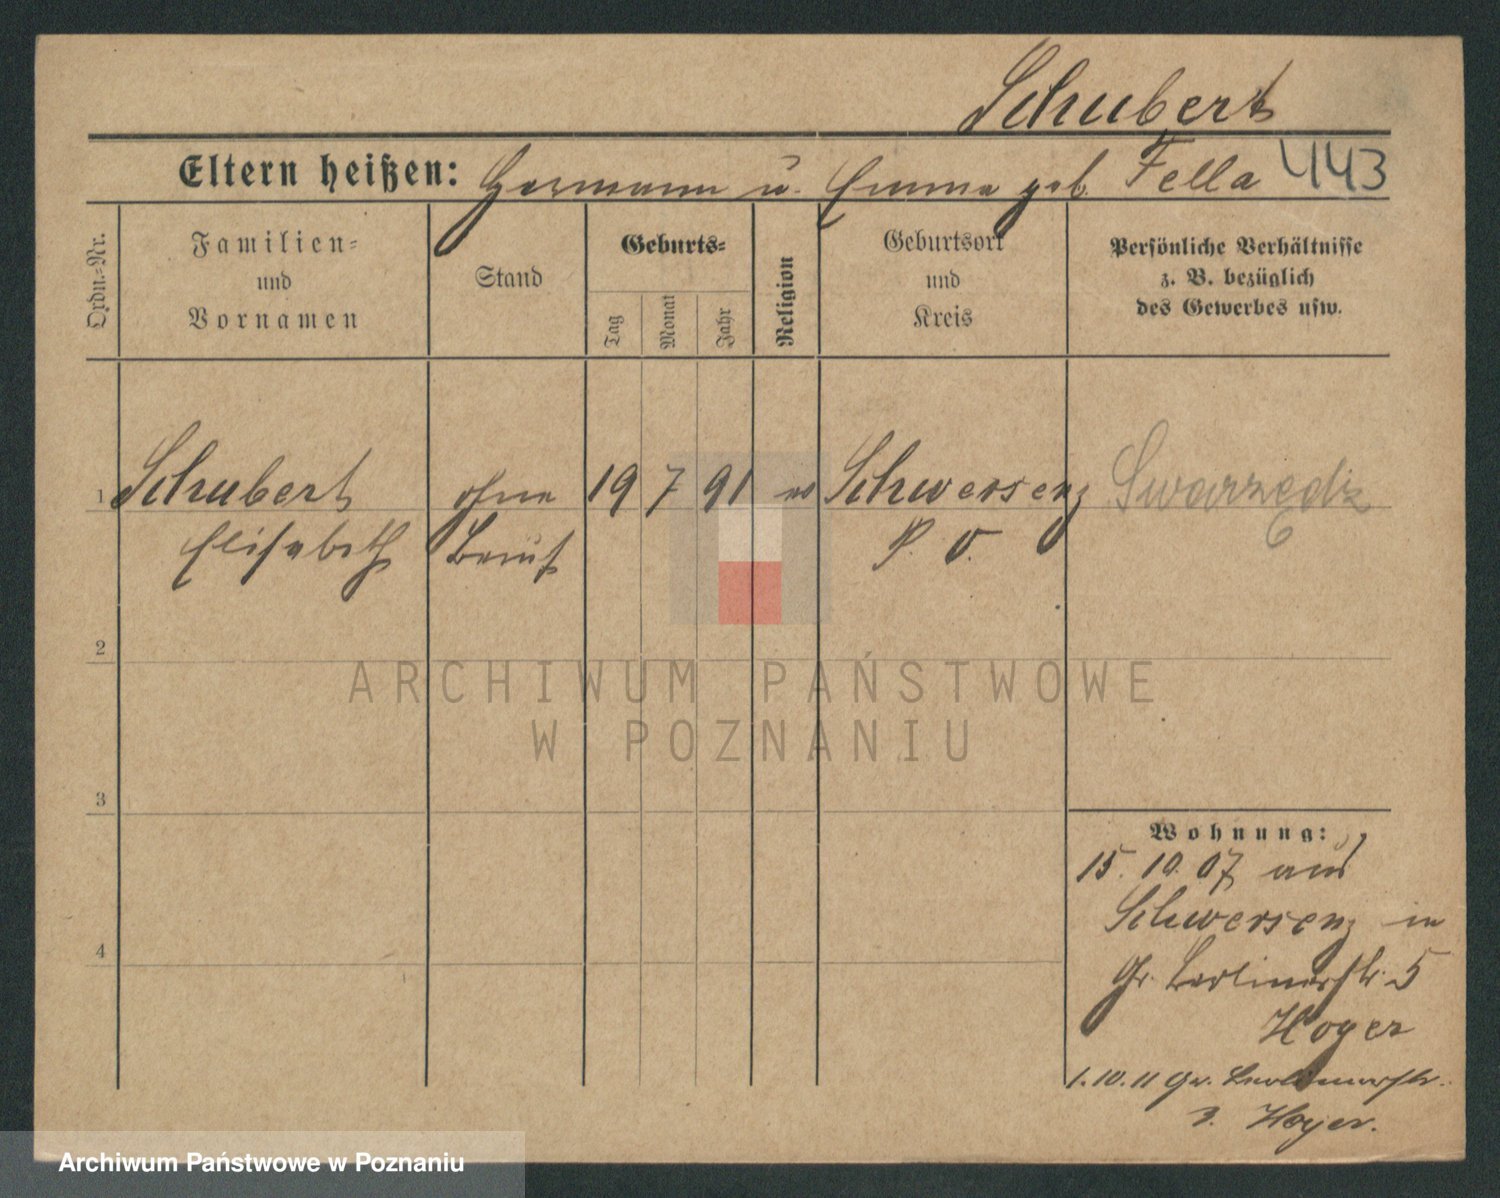 Schubert
Eltern heißen: Hermann u. Emma geb. Fella 443
Ordn.=Nr.
Familien=
und
Vornamen
Stand
Geburts=
Tag
Monat
Jahr
Religion
Geburtsort
und
Kreis
Persönliche Verhältnisse
z. B. bezüglich
des Gewerbes usw.
1 Schubert ohne 19 7 91 ev Schwersenz Swarzędz
Elisabeth Beruf P. O.
2
3
4
Wohnung:
15. 10. 07 aus
Schwersenz in
Gr. Berlinerstr. 5
Hoyer
1. 10. 11 Gr. Berlinerstr.
3. Hoyer.
ARCHIWUM PAŃSTWOWE
W POZNANIU
Archiwum Państwowe w Poznaniu